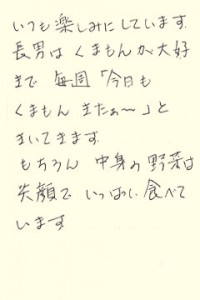 いつも楽しみにしています。
長男はくまもんが大好
きで 毎週「今日も
くまもん きたぁ〜」と
きいてきます。
もちろん 中身の野菜は
笑顔で いっぱい食べて
います。